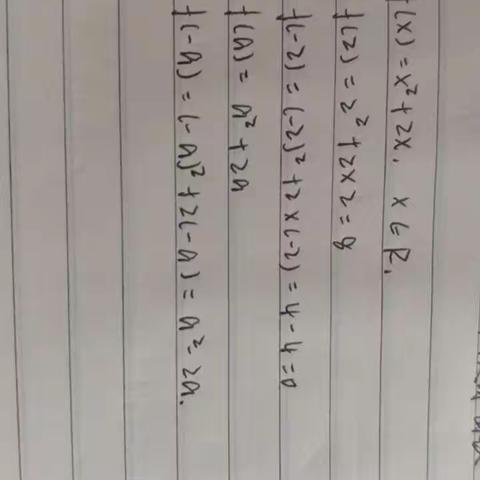 f(x) = x² + 2x, x ∈ R,
f(2) = 2² + 2 × 2 = 8
f(-2) = (-2)² + 2 × (-2) = 4 - 4 = 0
f(a) = a² + 2a
f(-a) = (-a)² + 2(-a) = a² - 2a.